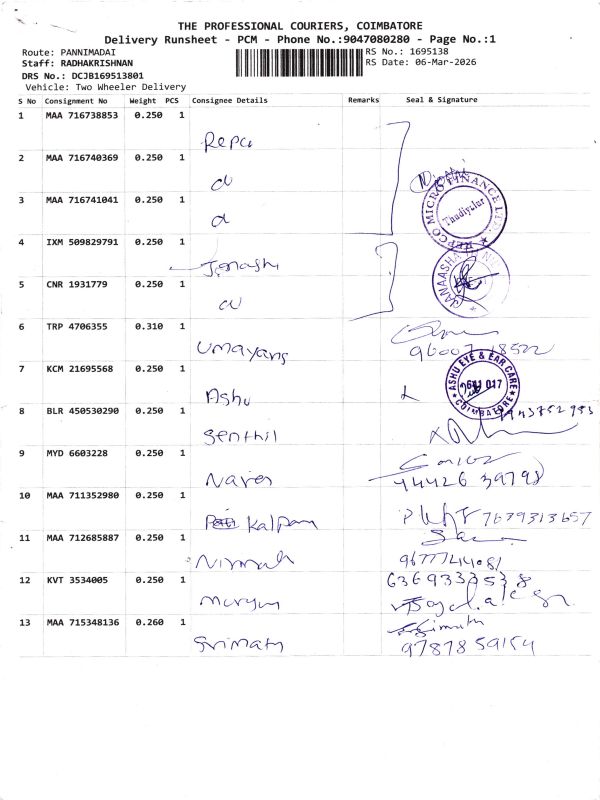 THE PROFESSIONAL COURIERS, COIMBATORE
Delivery Runsheet - PCM - Phone No.:9047080280 - Page No.:1
Route: PANNIMADAI
Staff: RADHAKRISHNAN
DRS No.: DCJB169513801
Vehicle: Two Wheeler Delivery
RS No.: 1695138
RS Date: 06-Mar-2026
S No Consignment No Weight PCS Consignee Details Remarks Seal & Signature
1 MAA 716738853 0.250 1
Repco
2 MAA 716740369 0.250 1
3 MAA 716741041 0.250 1
REPCO MICRO FINANCE LTD.
Thudiyalur
4 IXM 509829791 0.250 1
5 CNR 1931779 0.250 1
6 TRP 4706355 0.310 1
Umayang
7 KCM 21695568 0.250 1
Ashu
ASHU EYE & EAR CARE
641 017
COIMBATORE
8 BLR 450530290 0.250 1
Senthil
9 MYD 6603228 0.250 1
Naren
94426 39798
10 MAA 711352980 0.250 1
Kalpana
7679313657
11 MAA 712685887 0.250 1
Nirmal
12 KVT 3534005 0.250 1
Murugan
6369333538
13 MAA 715348136 0.260 1
Srimath
9787859154